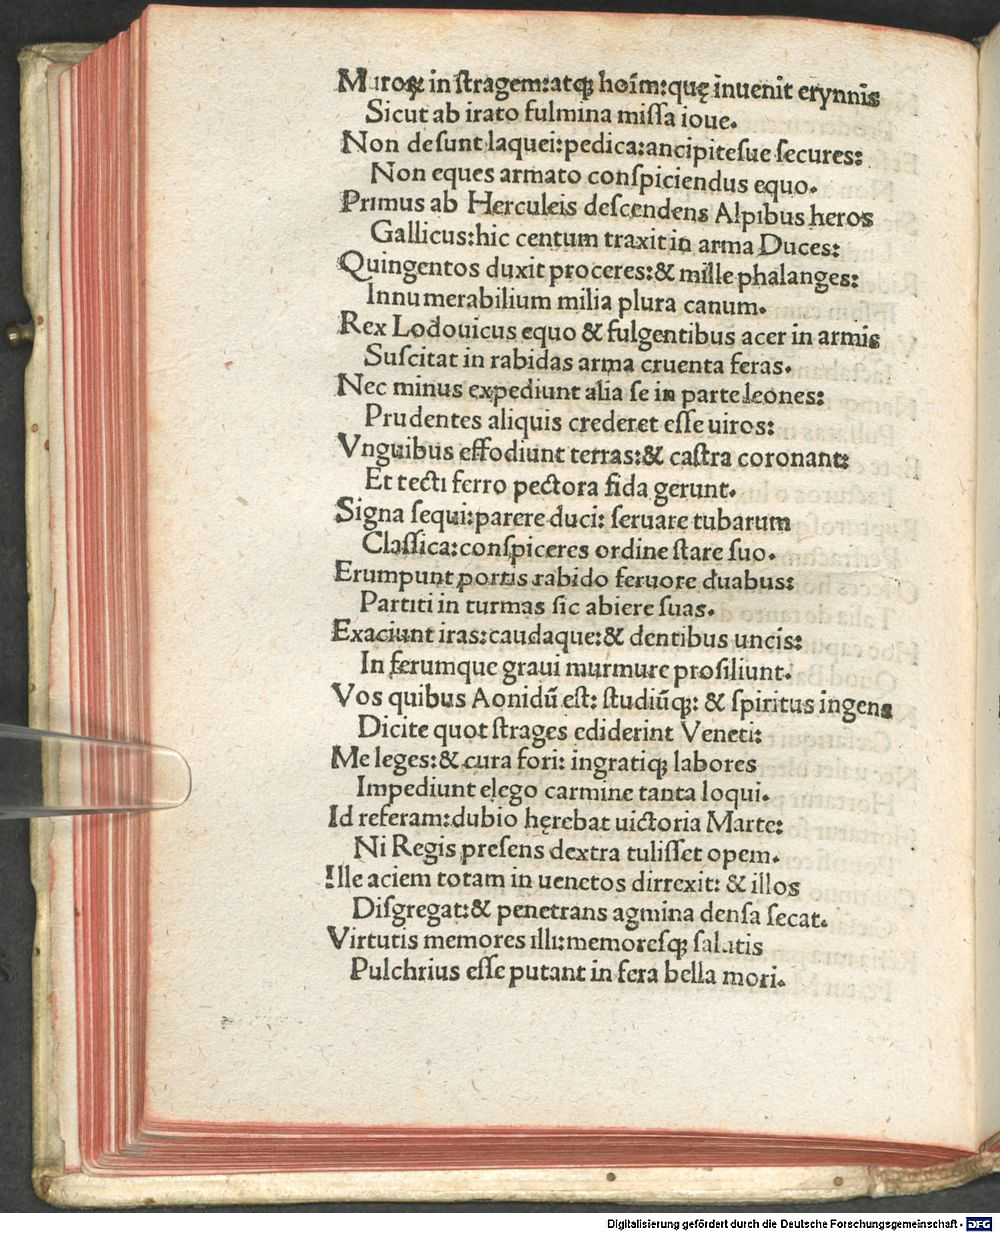 Muroꝝ in ſtragem:atqꝫ hoīm:quę inuenit erynnis
Sicut ab irato fulmina miſſa ioue.
Non deſunt laquei:pedica:ancipiteſue ſecures:
Non eques armato conſpiciendus equo.
Primus ab Herculeis deſcendens Alpibus heros
Gallicus:hic centum traxit in arma Duces:
Quingentos duxit proceres:& mille phalanges:
Innumerabilium milia plura canum.
Rex Lodouicus equo & fulgentibus acer in armis
Suſcitat in rabidas arma cruenta feras.
Nec minus expediunt alia ſe in parte leones:
Prudentes aliquis crederet eſſe uiros:
Vnguibus effodiunt terras:& caſtra coronant:
Et tecti ferro pectora fida gerunt.
Signa ſequi:parere duci: ſeruare tubarum
Claſſica:conſpiceres ordine ſtare ſuo.
Erumpunt portis rabido feruore duabus:
Partiti in turmas ſic abiere ſuas.
Exaciunt iras:caudaque:& dentibus uncis:
In ferumque graui murmure proſiliunt.
Vos quibus Aonidū eſt: ſtudiūqꝫ: & ſpiritus ingens
Dicite quot ſtrages ediderint Veneti:
Me leges:& cura fori: ingratiqꝫ labores
Impediunt elego carmine tanta loqui.
Id referam:dubio hęrebat uictoria Marte:
Ni Regis preſens dextra tuliſſet opem.
Ille aciem totam in uenetos dirrexit: & illos
Diſgregat:& penetrans agmina denſa ſecat.
Virtutis memores illi:memoreſqꝫ ſalutis
Pulchrius eſſe putant in fera bella mori.
Digitalisierung gefördert durch die Deutsche Forschungsgemeinschaft - DFG